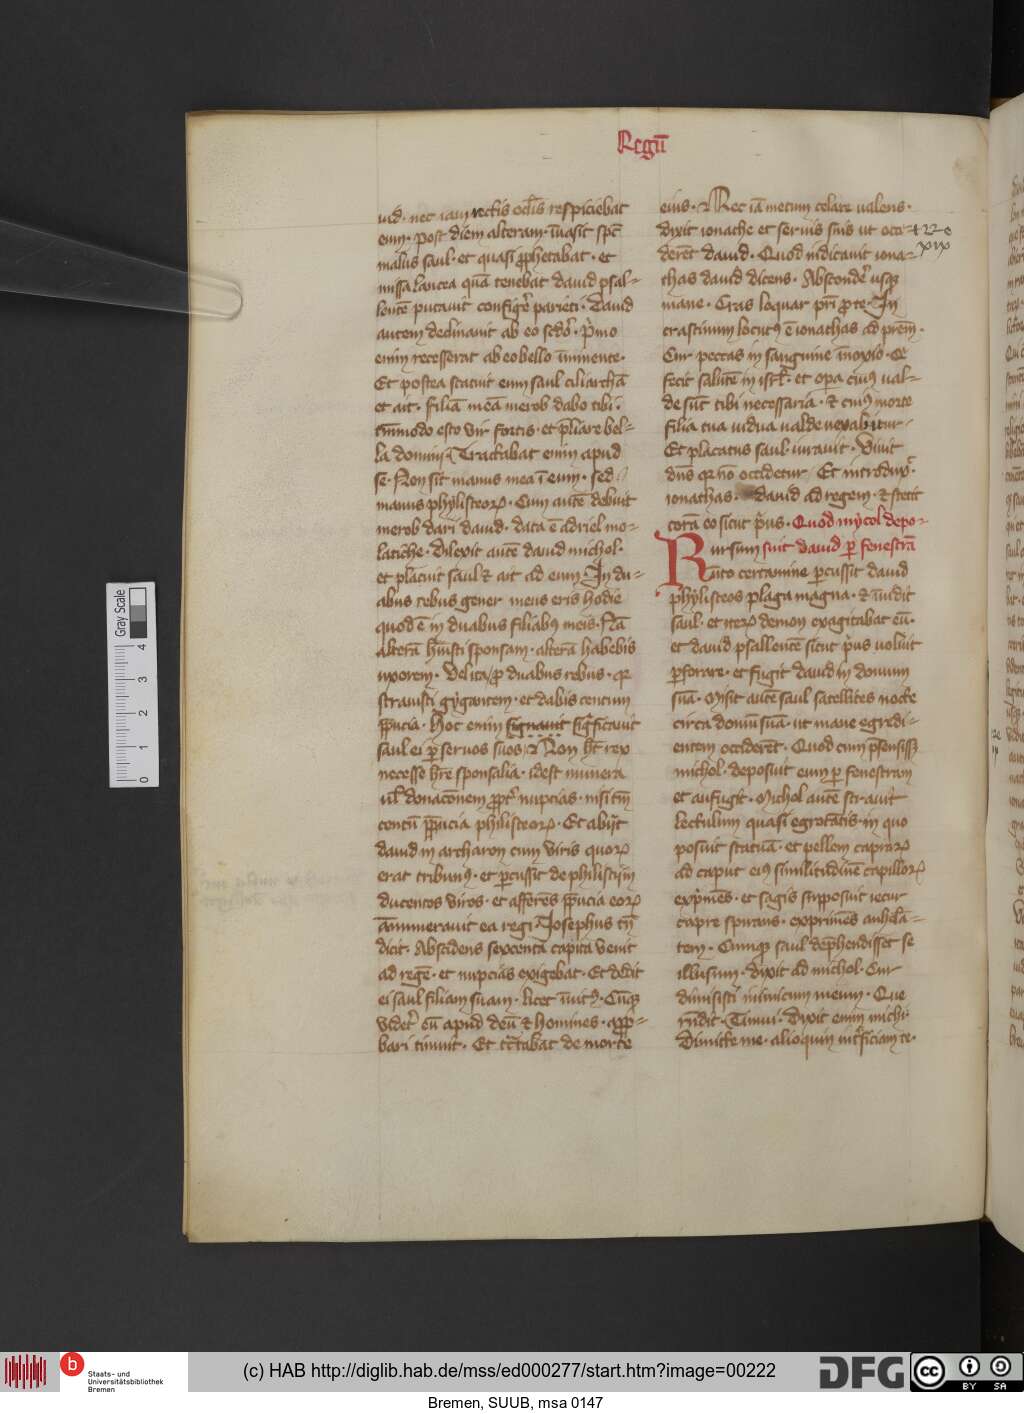 Regū
uid · nec iam rectis oclīs respiciebat
eum · post diem alteram · īuasit spc̄
malus saul · et quasi ꝓphetabat · et
missa lancea quā tenebat dauid psal=
lentē putauit configēr parieti · Dauid
autem declinauit ab eo scdō · p̄mo
enim recesserat ab eo bello īminente ·
Et postea statuit eum saul ciliarchā
et ait · filiā meā merob dabo tibi ·
tm̄modo esto vir fortis · et p̄liare bel=
la domini Tractabat enim apud
se · Non sit manus mea ī eum · sed
manus phylisteoꝝ · Cum autē debuit
merob dari dauid · data ē adriel mo=
latiche · Dilexit autē dauid michol ·
et placuit saul ⁊ ait ad eum In du=
abus rebus gener meus eris hodie
quod ē in duabus filiabꝰ meis · Nā
alterā hūisti sponsam · alterā habebis
uxorem · Vel ita ꝓ duabus rebus · qꝛ
strauisti gygantem · et dabis centum
p̄pucia · Hoc enim signauit significauit
saul ei ꝑ seruos suos Non ht̄ rex
necesse hr̄e sponsalia · idest munera
ul̄ donacōnem ꝓpt̄ nupcias · nisi tm̄
centū p̄pucia philisteoꝝ · Et abijt
dauid in accharon cum viris quoꝝ
erat tribunꝰ · et ꝑcussit de philistijm
ducentos viros · et afferēs p̄pucia eoꝝ
ānumerauit ea regi Josephus tn̄
dicit · Abscidens sexcenta capita venit
ad regē · et nupcias exigebat · Et dedit
ei saul filiam suam · licet īuitꝰ · Cūqꝫ
videt̄ eū apud deū ⁊ homines · app̄=
bari timuit · Et tc̄tabat de morte
eius · Nec iā metum celare ualens ·
dixit ionathe et seruis suis ut occi
xix
derēt dauid · Quod indicauit iona=
thas dauid dicens · Absconder̄ usqꝫ
mane · Cras loquar pr̄i ꝓ te In
crastinum locutꝰ ē ionathas ad prēm ·
Cur peccas in sanguine īnoxio · Qͥ
fecit salutē in isrl̄ · et opa eiꝰ ual=
de sūt tibi necessaria · ⁊ eiꝰ morte
filia tua uidua ualde uexabitur ·
Et placatus saul · iurauit · Viuit
dn̄s qꝛ nō occidetur Et introdux̄
ionathas · dauid ad regem · ⁊ stetit
corā eo sicut p̄us · Quod mycol depo=
Rursum suit dauid ꝑ fenestrā
īito certamine ꝑcussit dauid
phylisteos plaga magna · ⁊ īuidit
saul · et iteꝝ demon exagitabat eū ·
et dauid psallentē sicut p̄us voluit
ꝑforare · et fugit dauid in domum
suā · Misit autē saul satellites nocte
circa domū suā · ut mane egredi=
entem occiderēt · Quod cum p̄sensissꝫ
michol · deposuit eum ꝑ fenestram
et aufugit · Michol autē strauit
lectulum quasi egrotātis · in quo
posuit statuā · et pellem capraꝝ
ad caput eiꝰ similitudinē capilloꝝ
exp̄mēs · et sagis supposuit iecur
capre spirans · exprimēs anhelā=
tem · Cumqꝫ saul dep̄hendisset se
illusum · dixit ad michol · Cur
dimisisti inimicum meum · Que
rn̄dit · Timui · Dixit enim michi ·
Dimitte me · alioquin int̄ficiam te ·
Gray Scale
4
3
2
1
0
b
Staats- und
Universitätsbibliothek
Bremen
(c) HAB http://diglib.hab.de/mss/ed000277/start.htm?image=00222
DFG
cc
BY SA
Bremen, SUUB, msa 0147